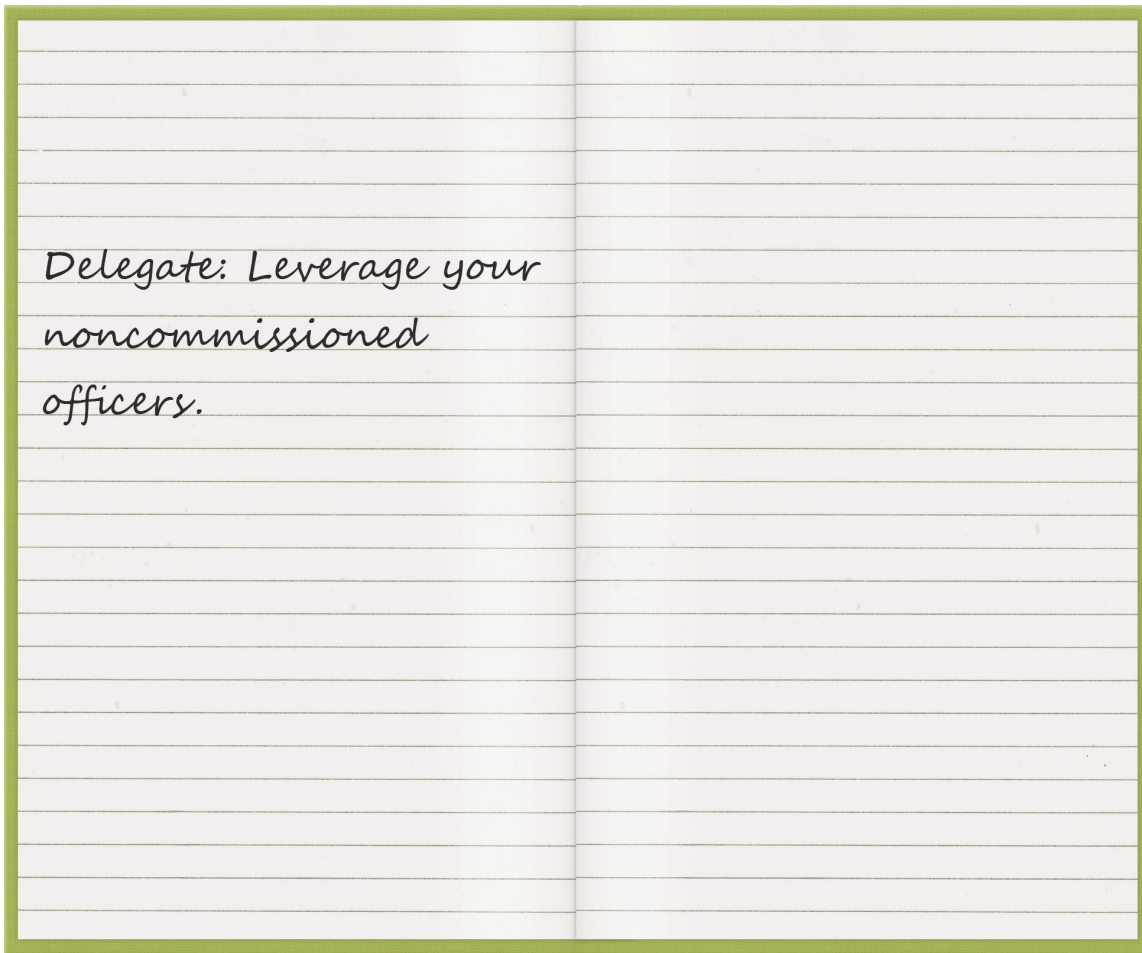 Delegate: Leverage your
noncommissioned
officers.